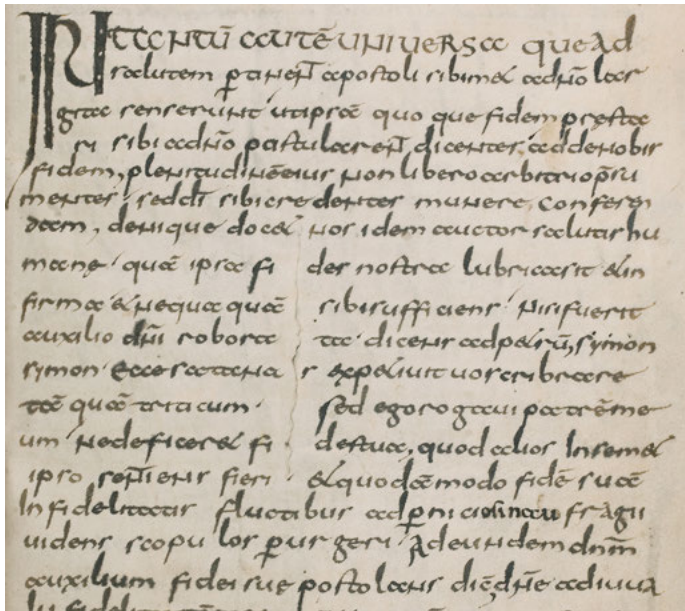 IN tantū autē universa que ad
salutem ꝑtinent̄ apostoli sibimet adn̄o lar
gita senserunt utipsā quo que fidem pręsta
ri sibi adn̄o postularent̄ dicentes, addenobis
fidem, plenitudinēeius non libero arbitrio p̄su
mentes, seddī sibicredentes munere conferen
dam, denique docet nos idem auctor salutis hu
mane quā ipsa fi des nostra lubricasit etin
firma etnequaquā sibisufficiens nisifuerit
auxilio dn̄i robora ta dicens adpetrū, symon
symon ecce satana s expetivit vos cribrare
tā quā triticum sed egorogavi patrēme
um nedeficeret fi destua, quod alius Insemet
ipso sentiens fieri etquodāmodo fidē suā
Infidelitatis fluctibus adꝑniciosinau fragii
videns scopu los ꝑurgeri Adeundem dnm̄
auxilium fidei sue postolans dic̄ dn̄e adiuva